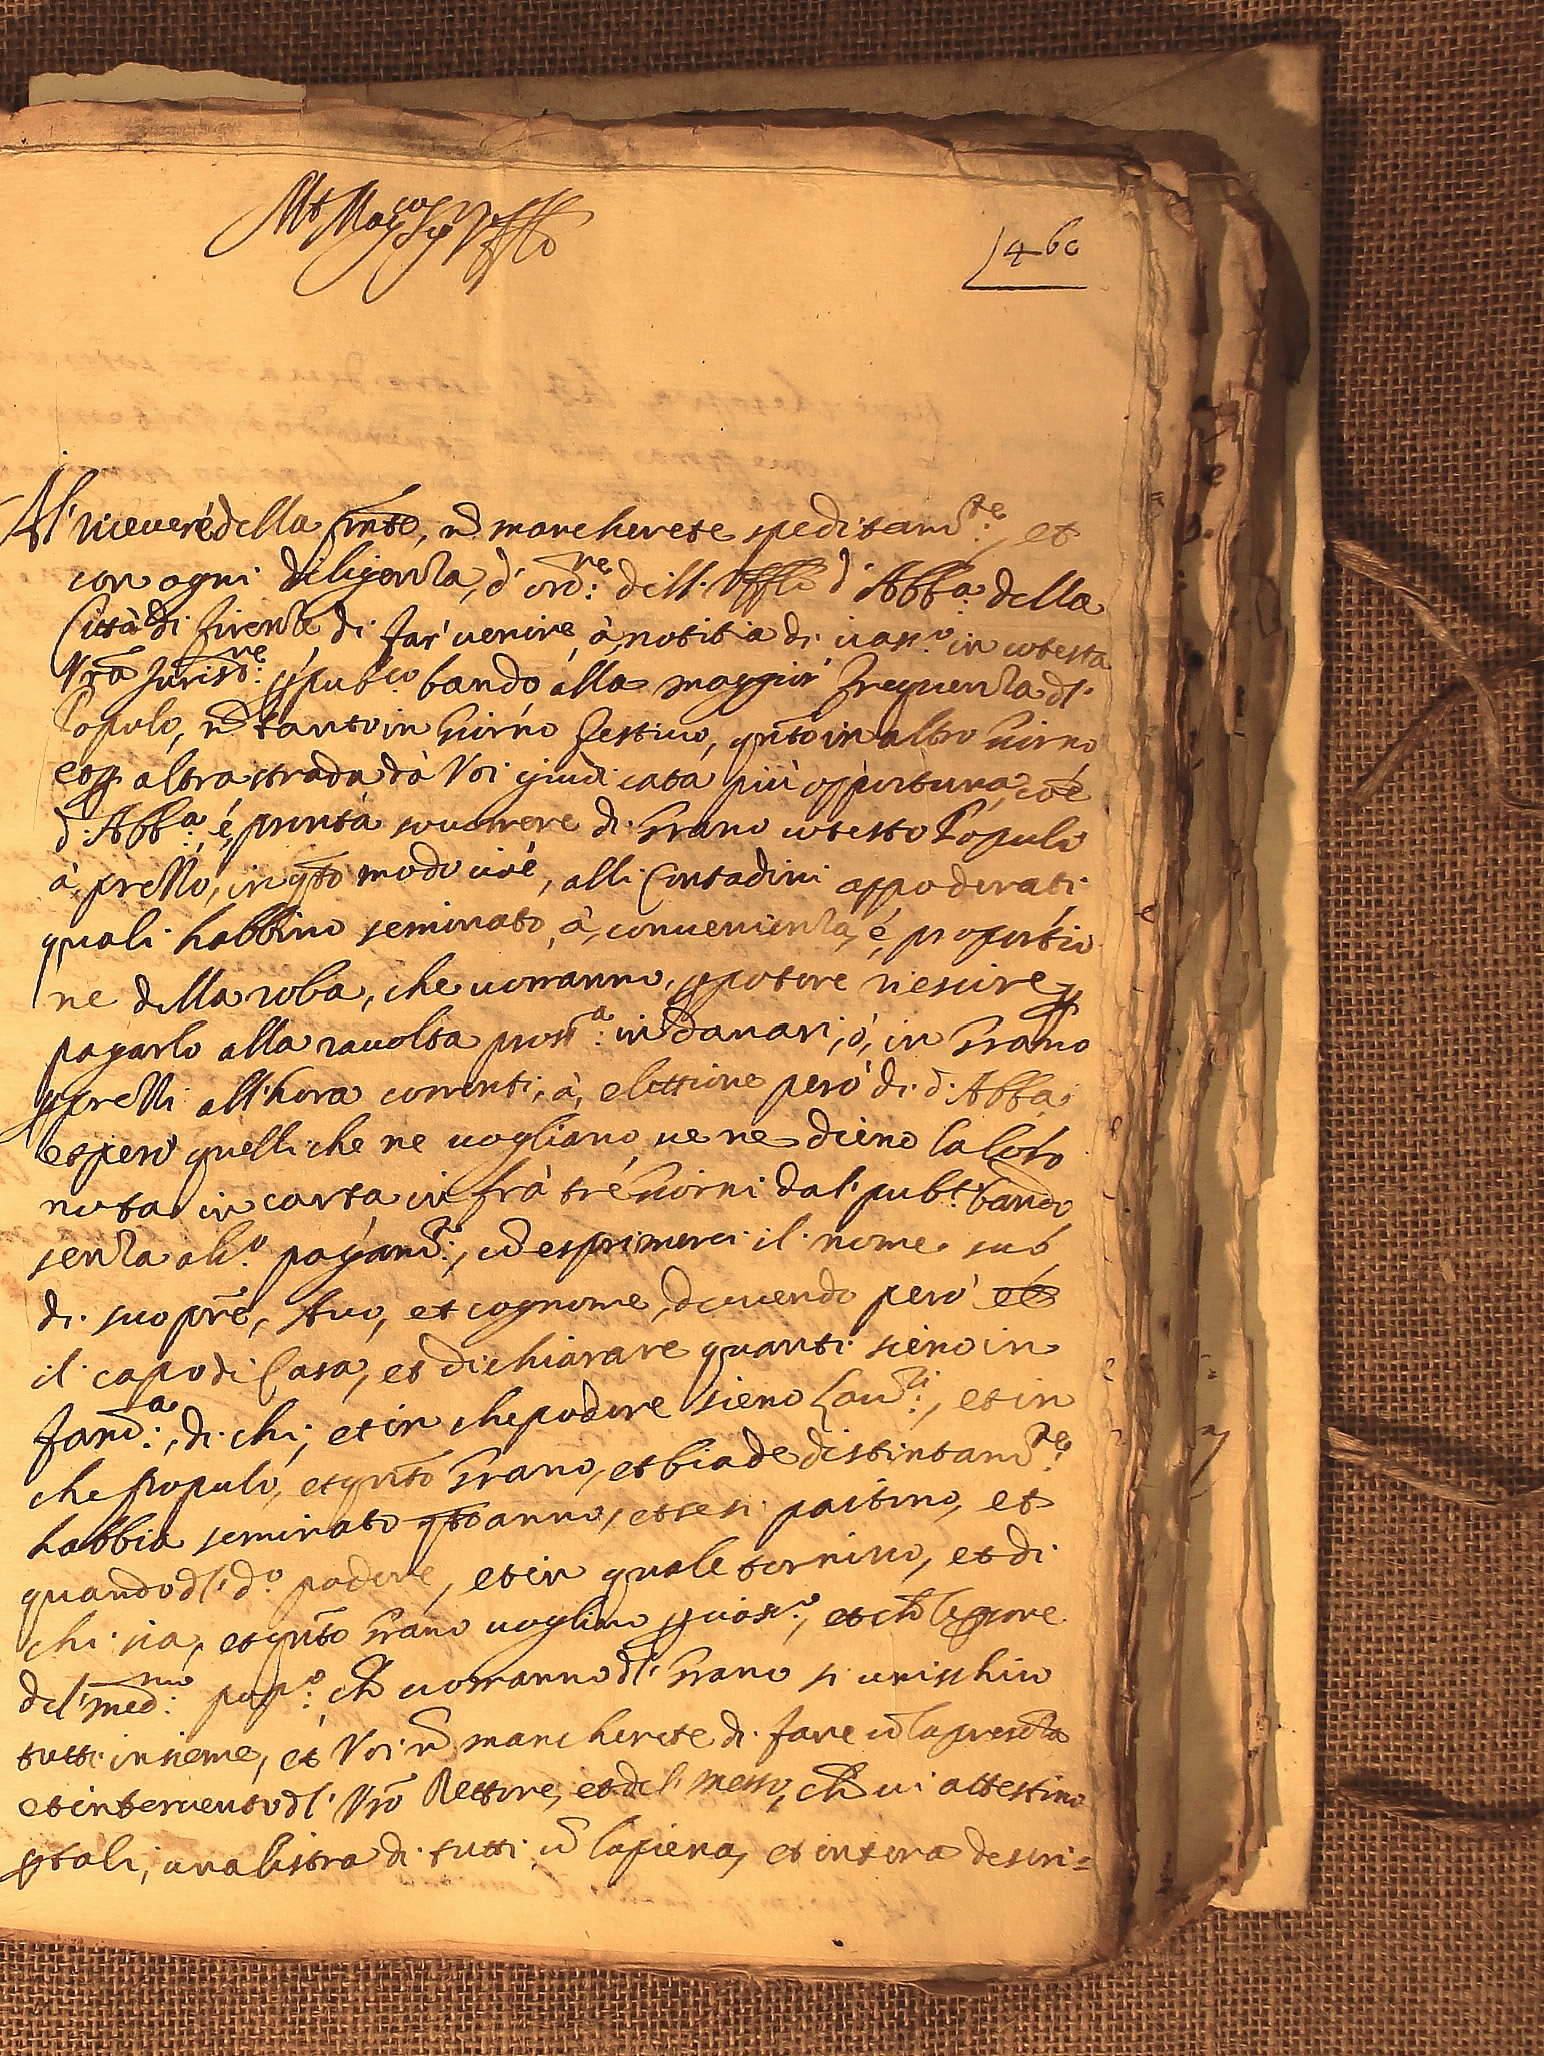 Mto Magco Sre Uffle
1460
Al' ricevere della pnte, nō mancherete speditamte: et
con ogni diligenza, d' ordne: dell. Uffio d' Abba: della
Città di Firenze di far' venire, à, notitia di ciasco: in cotesta
Vra Jurisdne: p pubco bando alla maggior' frequenza dl'
Popolo, nō tanto in Giorno festivo, qnto in altro Giorno
et p altra strada dà Voi giudicata più opportuna, cōe
d. Abba: é, pronta soccorrere di Grano cotesto Popolo
à, prezzo, in qsto modo cioè, alli Contadini appoderati
quali habbino seminato, à, convenienza, é, proportio
ne della roba, che vorranno, p potere riescire, p
pagarlo alla raccolta prossa: in danari, ò, in Grano
p prezzi all'hora correnti, à, elettione però di d. Abba:
et però quelli che ne vogliano, ve ne dieno la loro
nota in carta in frà tré Giorni dal' pubco: bando
senza alco: pagamto:, cō esprimerci il nome suo
di suo pre, Avo, et cognome, dovendo però
il capo di Casa, et dichiarare quanti sieno in
fama:, di chi, et in che podere sieno Lavri:, et in
che Popolo, et qnto Grano, et biade distintamte:
habbia seminato qsto anno, et se si partino, et
quando dl' do: podere, et in quale tornino, et di
chi sia, et qnto Grano voglino p ciasco:, et chē le pone
del' medmo: popo: chē vorranno dl' Grano si arischio
tutti insieme, et Voi nō mancherete di fare cō la presenza
et intervento dl' Vro Rettore, et del' messo, chē vi attestino
p tali, una listra di tutti cō la piena, et intera descri=